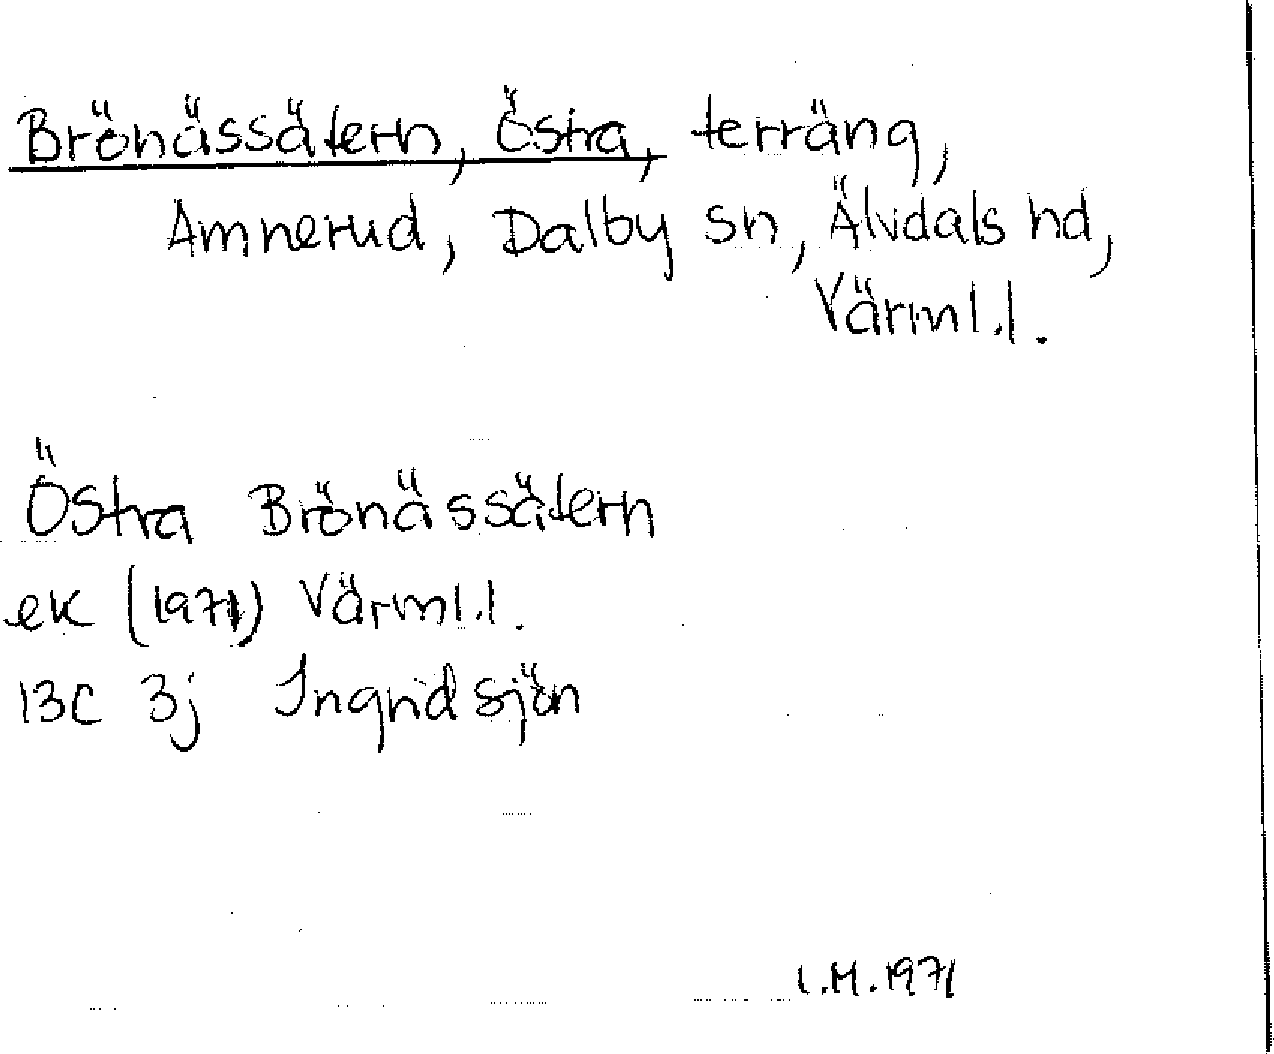 Brönässätern, Östra, terräng,
Amnerud, Dalby sn, Älvdals hd,
Värml.l.
Östra Brönässätern
ek (1971) Värml.l.
13C 3j Ingridsjön
I.M.1971